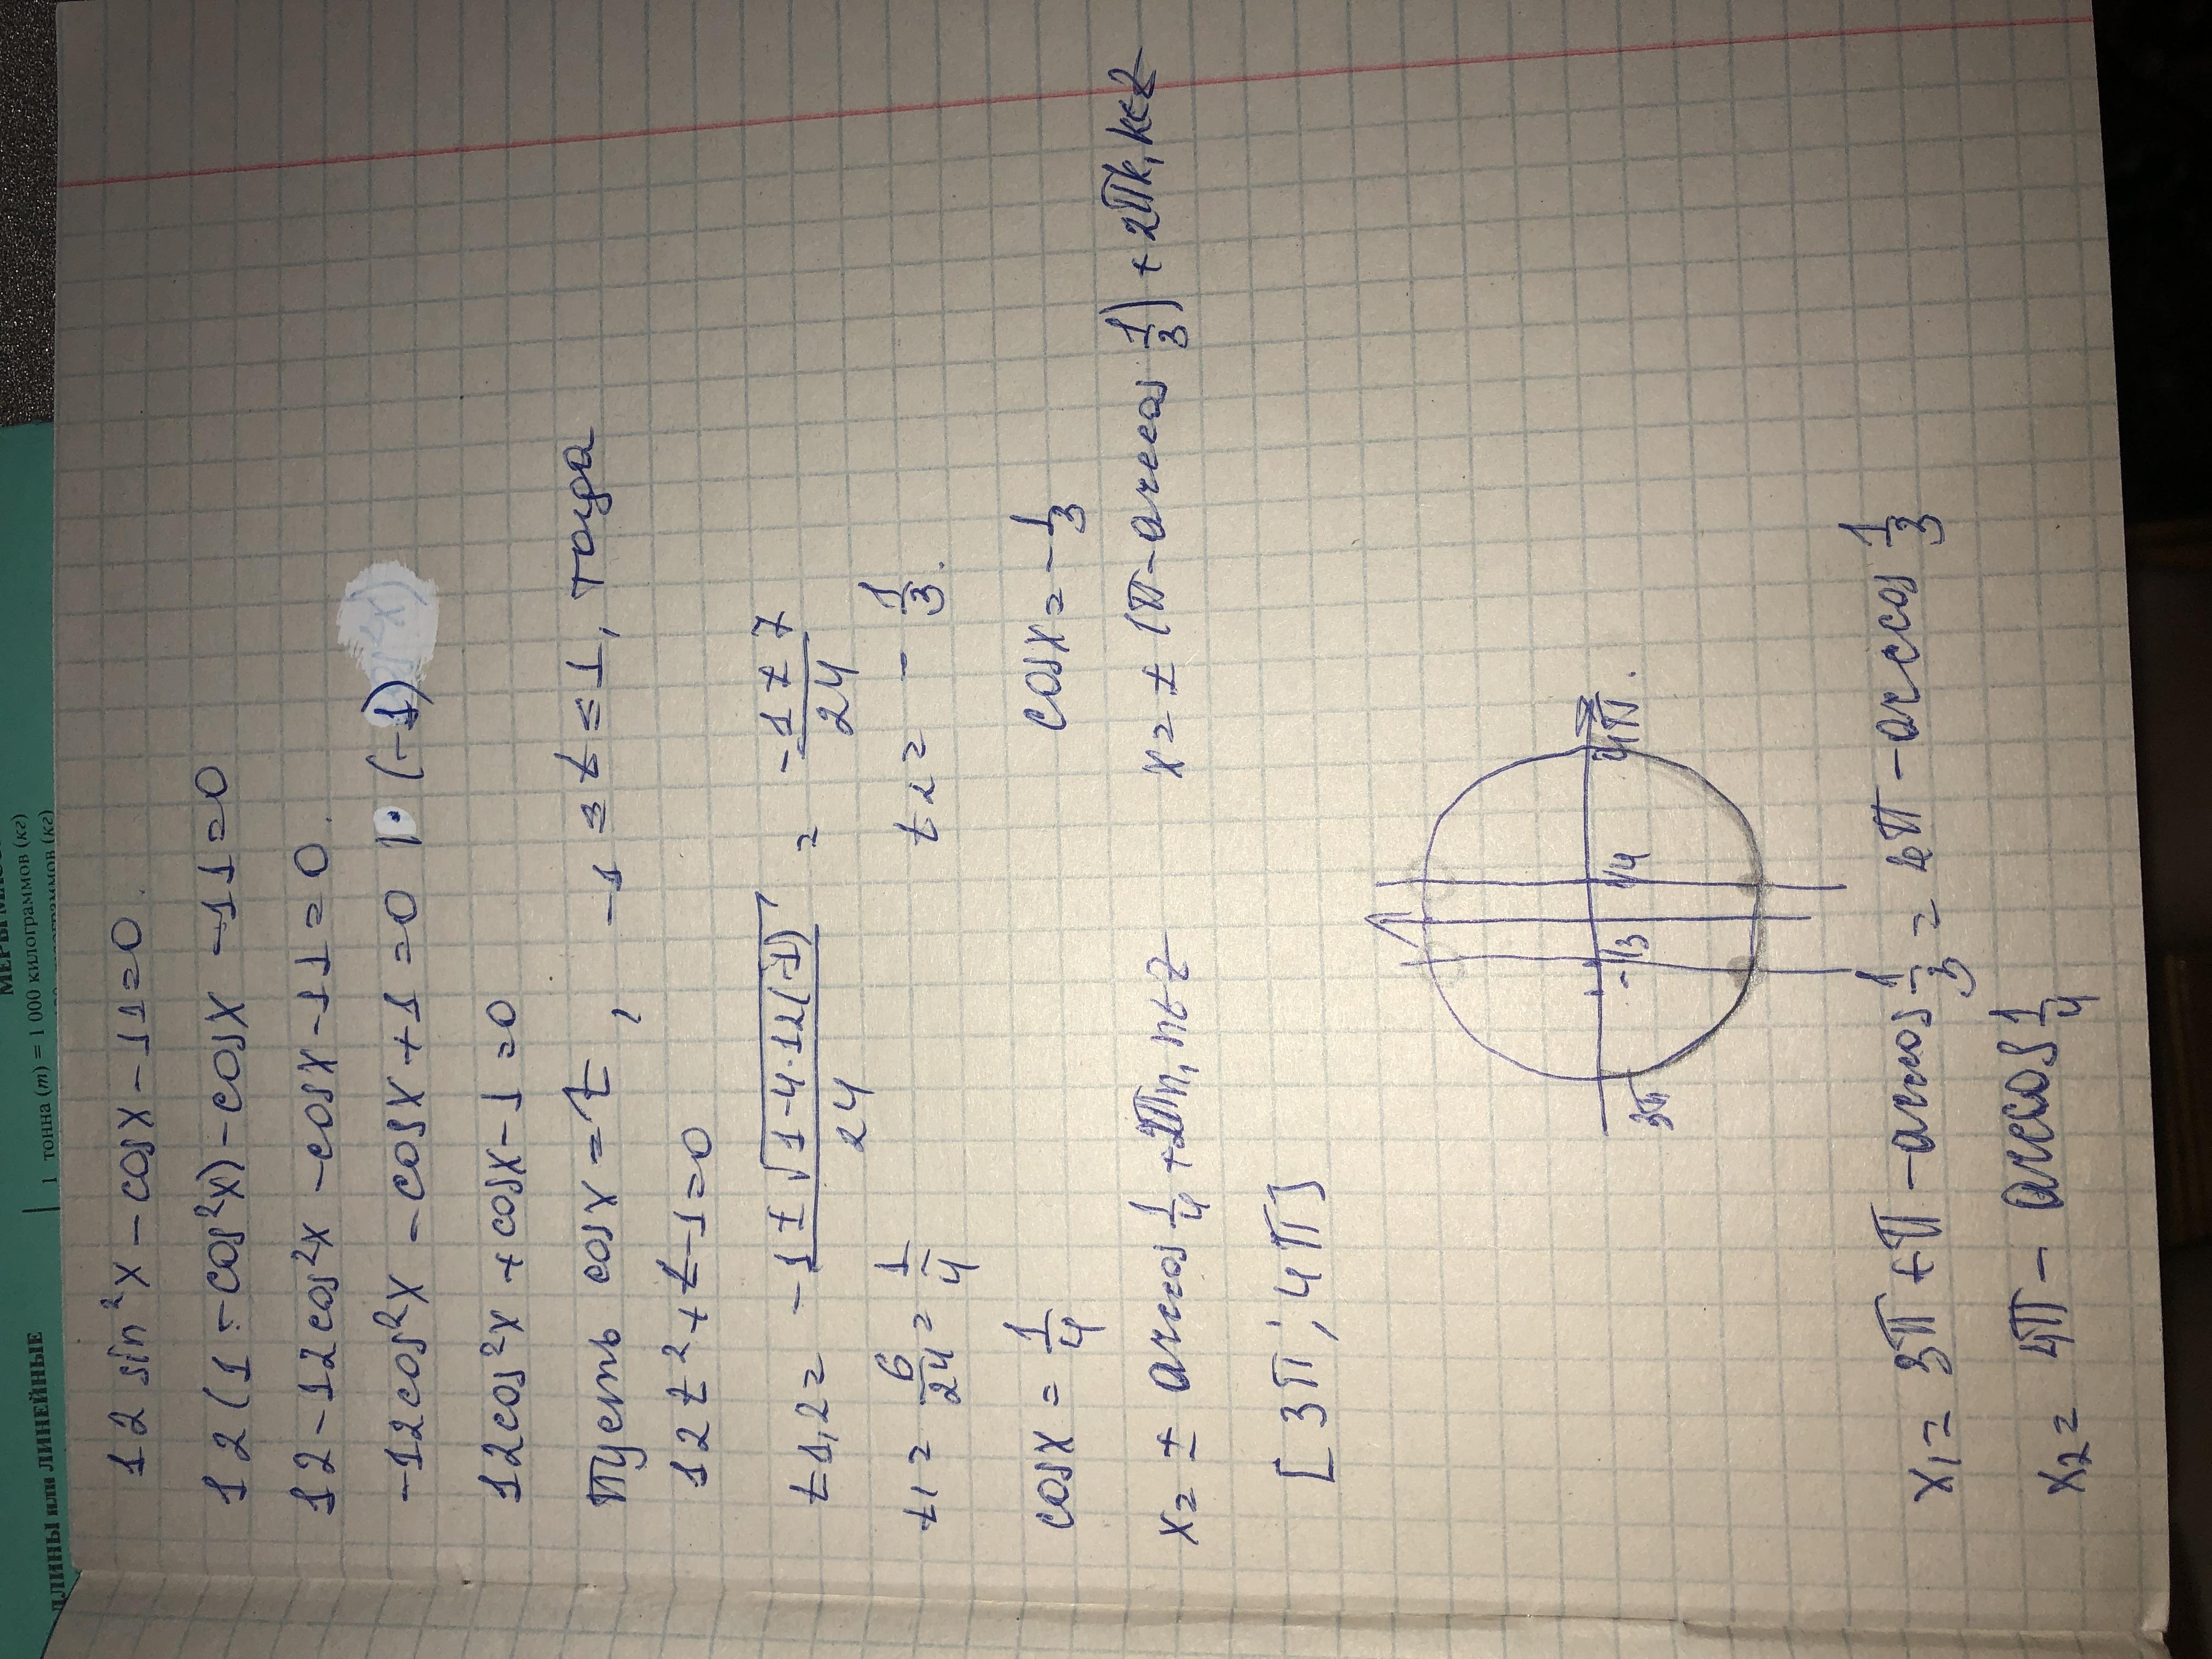 ДЛИНЫ или ЛИНЕЙНЫЕ
1 тонна (т) = 1 000 килограммов (кг)
12 sin²x - cosx - 11 = 0.
12 (1 - cos²x) - cosx - 11 = 0
12 - 12cos²x - cosx - 11 = 0.
-12cos²x - cosx + 1 = 0 |· (-1)
12cos²x + cosx - 1 = 0
Пусть cosx = t, -1 ≤ t ≤ 1, тогда
12t² + t - 1 = 0
t1,2 = -1 ± √1-4·12(-1) / 24 = -1 ± 7 / 24
t1 = 6/24 = 1/4 t2 = - 1/3.
cosx = 1/4 cosx = - 1/3
x = ± arccos 1/4 + 2πn, n∈Z x = ± (π - arccos 1/3) + 2πk, k∈Z
[3π; 4π]
3π -1/3 1/4 4π.
x1 = 3π + π - arccos 1/3 = 4π - arccos 1/3
x2 = 4π - arccos 1/4